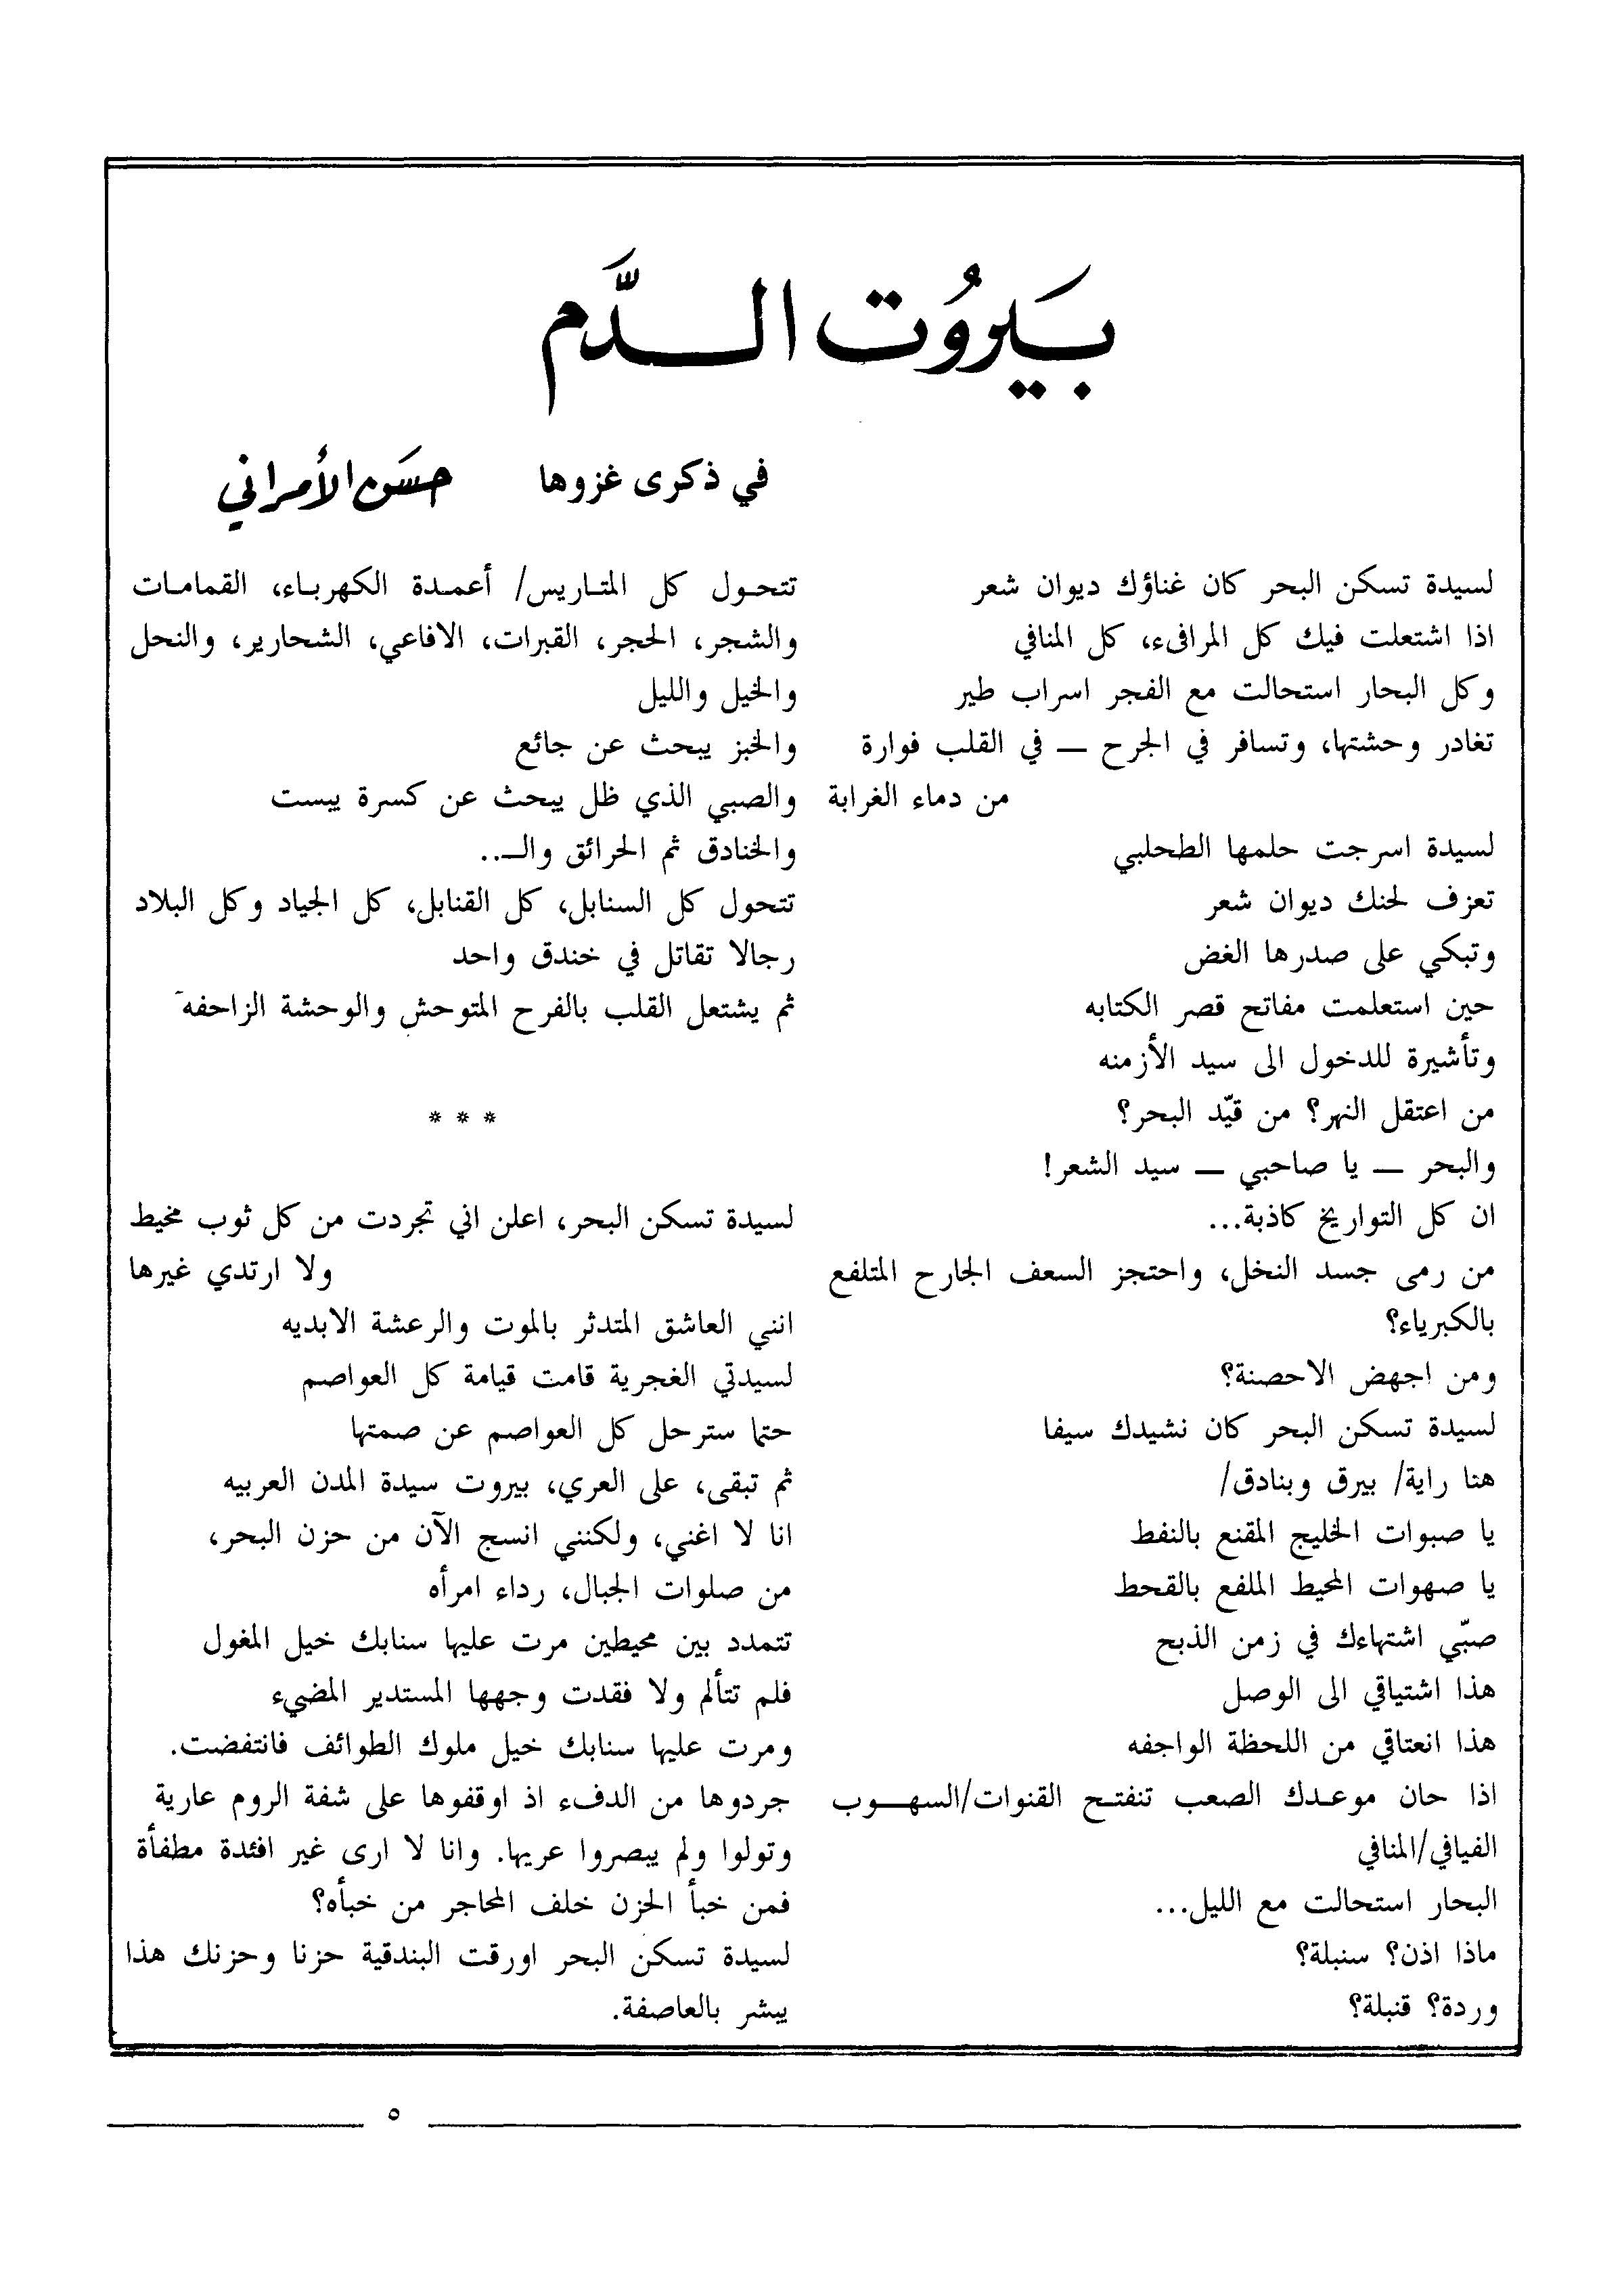 بَيرُوت الدَّم
في ذكرى غزوها
حسَن الأمراني
لسيدة تسكن البحر كان غناؤك ديوان شعر
اذا اشتعلت فيك كل المرافىء، كل المنافي
وكل البحار استحالت مع الفجر اسراب طير
تغادر وحشتها، وتسافر في الجرح — في القلب فوارة
من دماء الغرابة
لسيدة اسرجت حلمها الطحلبي
تعزف لحنك ديوان شعر
وتبكي على صدرها الغض
حين استعلمت مفاتح قصر الكتابه
وتأشيرة للدخول الى سيد الأزمنه
من اعتقل النهر؟ من قيّد البحر؟
والبحر — يا صاحبي — سيد الشعر!
ان كل التواريخ كاذبة...
من رمى جسد النخل، واحتجز السعف الجارح المتلفع
بالكبرياء؟
ومن اجهض الاحصنة؟
لسيدة تسكن البحر كان نشيدك سيفا
هنا راية/ بيرق وبنادق/
يا صبوات الخليج المقنع بالنفط
يا صهوات المحيط الملفع بالقحط
صبّي اشتهاءك في زمن الذبح
هذا اشتياقي الى الوصل
هذا انعتاقي من اللحظة الواجفه
اذا حان موعدك الصعب تنفتح القنوات/السهوب
الفيافي/المنافي
البحار استحالت مع الليل...
ماذا اذن؟ سنبلة؟
وردة؟ قنبلة؟
تتحول كل المتاريس/ أعمدة الكهرباء، القمامات
والشجر، الحجر، القبرات، الافاعي، الشحارير، والنحل
والخيل والليل
والخبز يبحث عن جائع
والصبي الذي ظل يبحث عن كسرة يبست
والخنادق ثم الحرائق والـ..
تتحول كل السنابل، كل القنابل، كل الجياد وكل البلاد
رجالا تقاتل في خندق واحد
ثم يشتعل القلب بالفرح المتوحش والوحشة الزاحفه
* * *
لسيدة تسكن البحر، اعلن اني تجردت من كل ثوب مخيط
ولا ارتدي غيرها
انني العاشق المتدثر بالموت والرعشة الابديه
لسيدتي الغجرية قامت قيامة كل العواصم
حتما سترحل كل العواصم عن صمتها
ثم تبقى، على العري، بيروت سيدة المدن العربيه
انا لا اغني، ولكنني انسج الآن من حزن البحر،
من صلوات الجبال، رداء امرأه
تتمدد بين محيطين مرت عليها سنابك خيل المغول
فلم تتألم ولا فقدت وجهها المستدير المضيء
ومرت عليها سنابك خيل ملوك الطوائف فانتفضت.
جردوها من الدفء اذ اوقفوها على شفة الروم عارية
وتولوا ولم يبصروا عريها. وانا لا ارى غير افئدة مطفأة
فمن خبأ الحزن خلف المحاجر من خبأه؟
لسيدة تسكن البحر اورقت البندقية حزنا وحزنك هذا
يبشر بالعاصفة.
٥